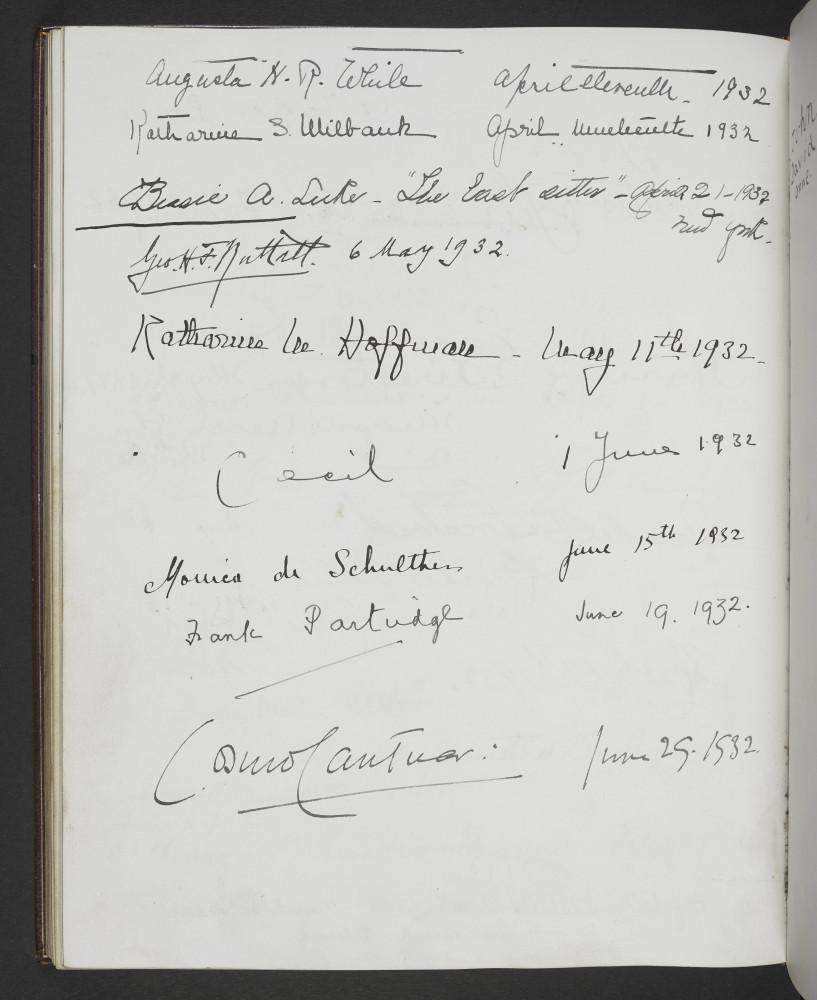 Augusta H. P. White April eleventh - 1932
Katharine S. Wilbank April nineteenth 1932
Bessie A. Luke - "The last sitter" - April 21 - 1932
New York -
Geo. H. F. Nuttall. 6 May 1932.
Katharine M. Hoffman - May 11th 1932 -
Cecil 1 June 1932
Monica de Schulthess June 15th 1932
Frank Partridge June 19. 1932.
Cosmo Cantuar: June 29. 1932.